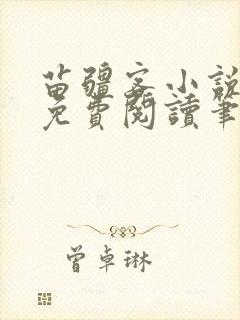 苗疆客小說
免費閱讀筆
曾卓琳